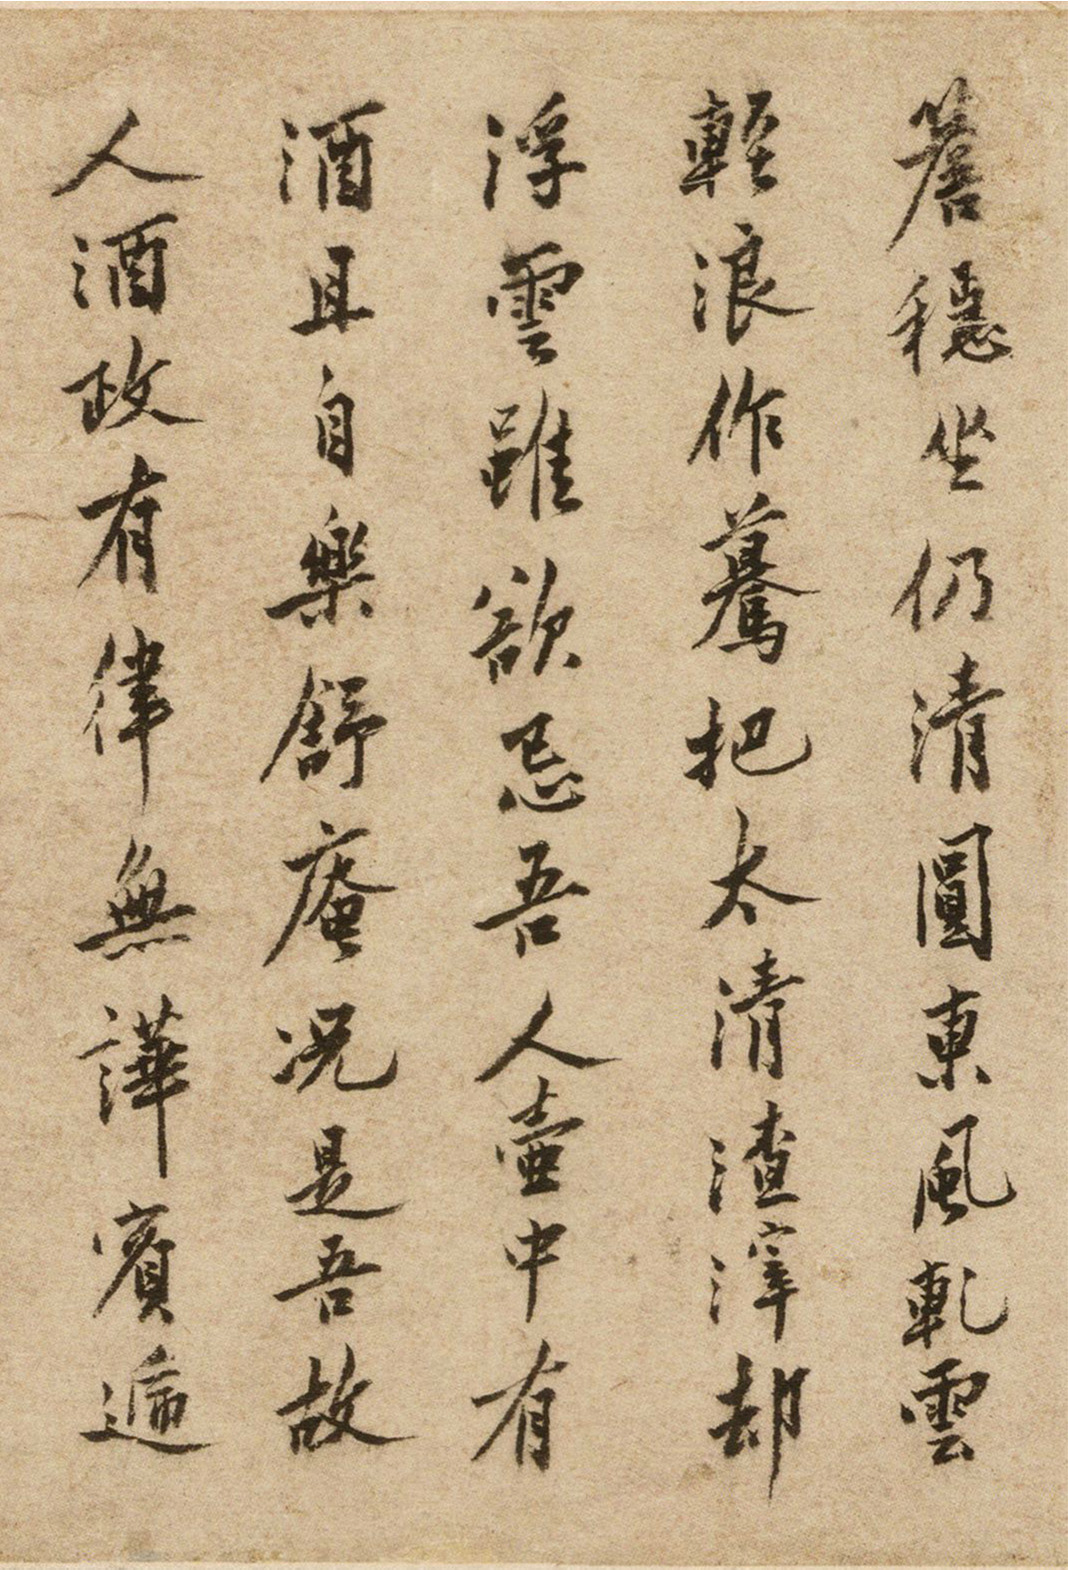 簷穩坐仍清圓東風軋雲
輕浪作驀把太清渣滓却
浮雲雖欲忌吾人壺中有
酒且自樂舒庵况是吾故
人酒政有律無譁賓遞